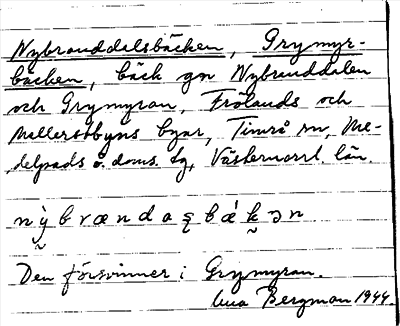 Nybränddalsbäcken, Grymyr-
bäcken, bäck gn Nybränddalen
och Grymyran, Frölands och
Mellerstbyns byar, Timrå sn, Me-
delpads ö. doms. tg, Västernorrl. län.
Den försvinner i Grymyran.
Bergman 1944.